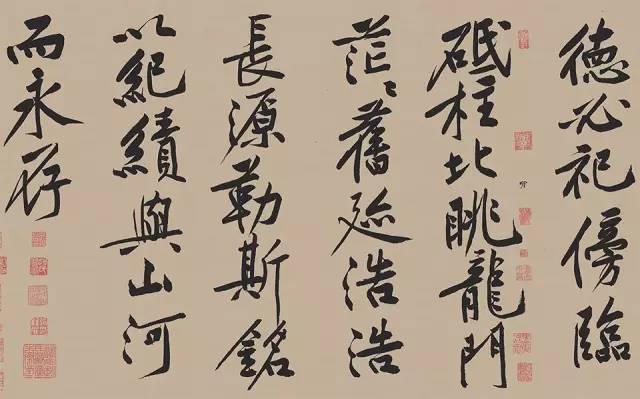 德必祀傍臨
砥柱北眺龍門
茫〻舊迹浩浩
長源勒斯銘
以紀績與山河
而永存